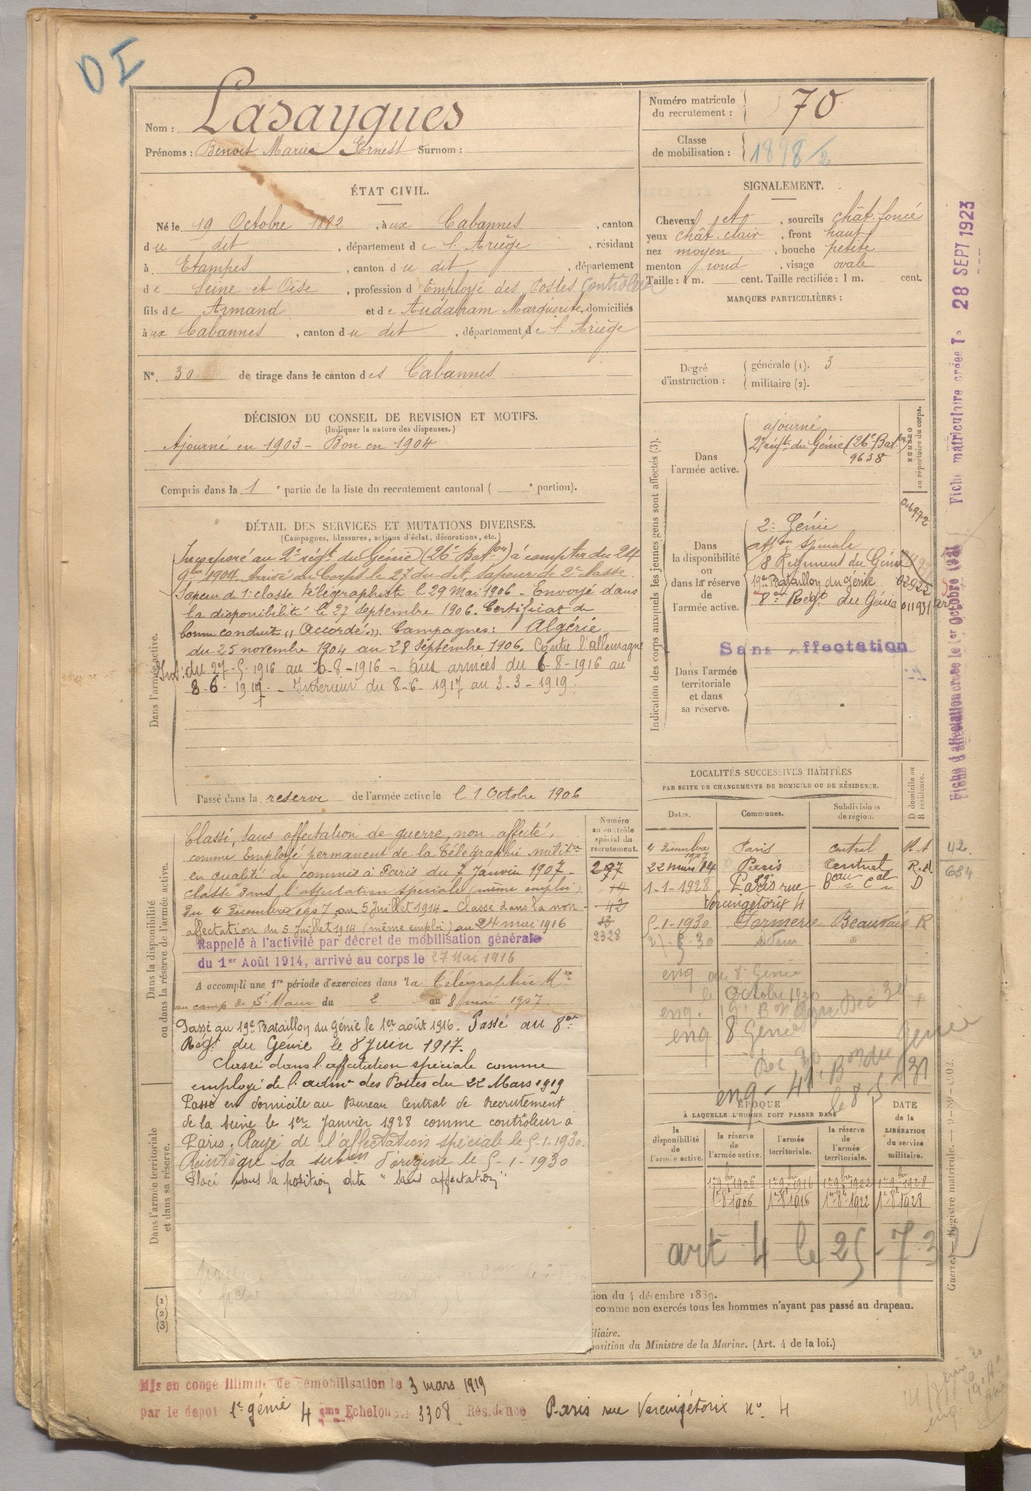 DI
Nom : Lasaygues
Prénoms : Benoit Marie Ernest Surnom :
Numéro matricule du recrutement : 70
Classe de mobilisation : 1898/2
ÉTAT CIVIL.
Né le 19 Octobre 1882, à ux Cabannes, canton
d u dit, département d e l'Ariège, résidant
à Etampes, canton d u dit, département
d e Seine et Oise, profession d'Employé des Postes Contrôleur
fils d e Armand et d e Audabram Marguerite, domiciliés
à ux Cabannes, canton d u dit, département d e l'Ariège
N° 30 de tirage dans le canton d es Cabannes
SIGNALEMENT.
Cheveux, sourcils chât. foncé
yeux chât. clair, front haut
nez moyen, bouche petite
menton rond, visage ovale
Taille : 1 m. cent. Taille rectifiée : 1 m. cent.
MARQUES PARTICULIÈRES :
Degré d'instruction : générale (1). 3
militaire (2).
DÉCISION DU CONSEIL DE REVISION ET MOTIFS.
(Indiquer la nature des dispenses.)
Ajourné en 1903 - Bon en 1904
Compris dans la 1e partie de la liste du recrutement cantonal ( e portion).
DÉTAIL DES SERVICES ET MUTATIONS DIVERSES.
(Campagnes, blessures, actions d'éclat, décorations, etc.)
Dans l'armée active.
Incorporé au 2e régt du Génie (26e Baton) à compter du 24
9bre 1904. Arrivé au Corps le 27 du dit, sapeur de 2e classe.
Sapeur de 1e classe télégraphiste le 29 mai 1906 - Envoyé dans
la disponibilité le 27 septembre 1906. Certificat de
bonne conduite "Accordé". Campagnes : Algérie
du 25 novembre 1904 au 28 septembre 1906. Contre l'Allemagne
Int. du 27-5-1916 au 6-8-1916 - aux armées du 6-8-1916 au
8-6-1917 - Intérieur du 8-6-1917 au 3-3-1919.
Passé dans la réserve de l'armée active le 1 Octobre 1906
Indication des corps auxquels les jeunes gens sont affectés (3).
Dans l'armée active.
ajourné
2e régt du Génie (26e Baton)
9638
NUMÉRO au répertoire du corps.
Dans la disponibilité ou dans la réserve de l'armée active.
2e Génie
affon spéciale
8 Régiment du Génie
19e Bataillon du génie
8e Régt du Génie
Sans Affectation
Dans l'armée territoriale et dans sa réserve.
Fiche matriculaire créée le 28 SEPT 1923
Fiche d'affectation créée le 1er Octobre 1931
Dans la disponibilité ou dans la réserve de l'armée active.
Numéro au contrôle spécial du recrutement.
297
14
12
2328
Classé, sans affectation de guerre, non affecté,
comme employé permanent de la Télégraphie militre
en qualité de commis à Paris du 7 janvier 1907 -
classé dans l'affectation spéciale (même emploi)
du 4 décembre 1907 au 5 juillet 1914 - Classé dans la non-
affectation du 5 juillet 1914 (même emploi) au 24 mai 1916
Rappelé à l'activité par décret de mobilisation générale
du 1er Août 1914, arrivé au corps le 27 Mai 1916
A accompli une 1re période d'exercices dans la télégraphie Mre
au camp de St Maur du 2 au 8 mai 1907.
Passé au 19e Bataillon du Génie le 1er août 1916. Passé au 8me
Régt du Génie le 8 Juin 1917.
Classé dans l'affectation spéciale comme
employé de l'admon des Postes du 22 Mars 1919
Passé en domicile au Bureau Central de Recrutement
de la Seine le 1er Janvier 1928 comme contrôleur à
Paris. Rayé de l'affectation spéciale le 5-1-1930.
Réintègre sa subon d'origine le 5-1-1930
Placé dans la position dite "sans affectation"
LOCALITÉS SUCCESSIVES HABITÉES
PAR SUITE DE CHANGEMENTS DE DOMICILE OU DE RÉSIDENCE.
Dates. Communes. Subdivisions de région. D domicile ou R résidence.
4 décembre 1907 Paris Central R.A 42
22 mars 14 Paris Central R.A 684
1-1-1928 Paris rue Vercingétorix 4 Beau Cal D
5-1-1930 Formerie Beauvais R
eng au 8e Génie
Octobre 1930
eng 8 Génie
eng - 41e Bon du Génie
le 8-5-31
ÉPOQUE
À LAQUELLE L'HOMME DOIT PASSER DANS
la disponibilité de l'armée active. la réserve de l'armée active. l'armée territoriale. la réserve de l'armée territoriale.
DATE de la LIBÉRATION du service militaire.
1er 8bre 1906 1er 8bre 1916 1er 8bre 1922 1er 8bre 1928
art 4 le 25-7-32
Dans l'armée territoriale et dans sa réserve.
(1)
(2)
(3)
ion du 4 décembre 1889.
comme non exercés tous les hommes n'ayant pas passé au drapeau.
liaire.
position du Ministre de la Marine. (Art. 4 de la loi.)
Guerre. — Registre matricule.
Mis en congé illimité de démobilisation le 3 mars 1919
par le dépôt 1er génie 4 ème Echelon n° 3308 Résidence Paris rue Vercingétorix n° 4